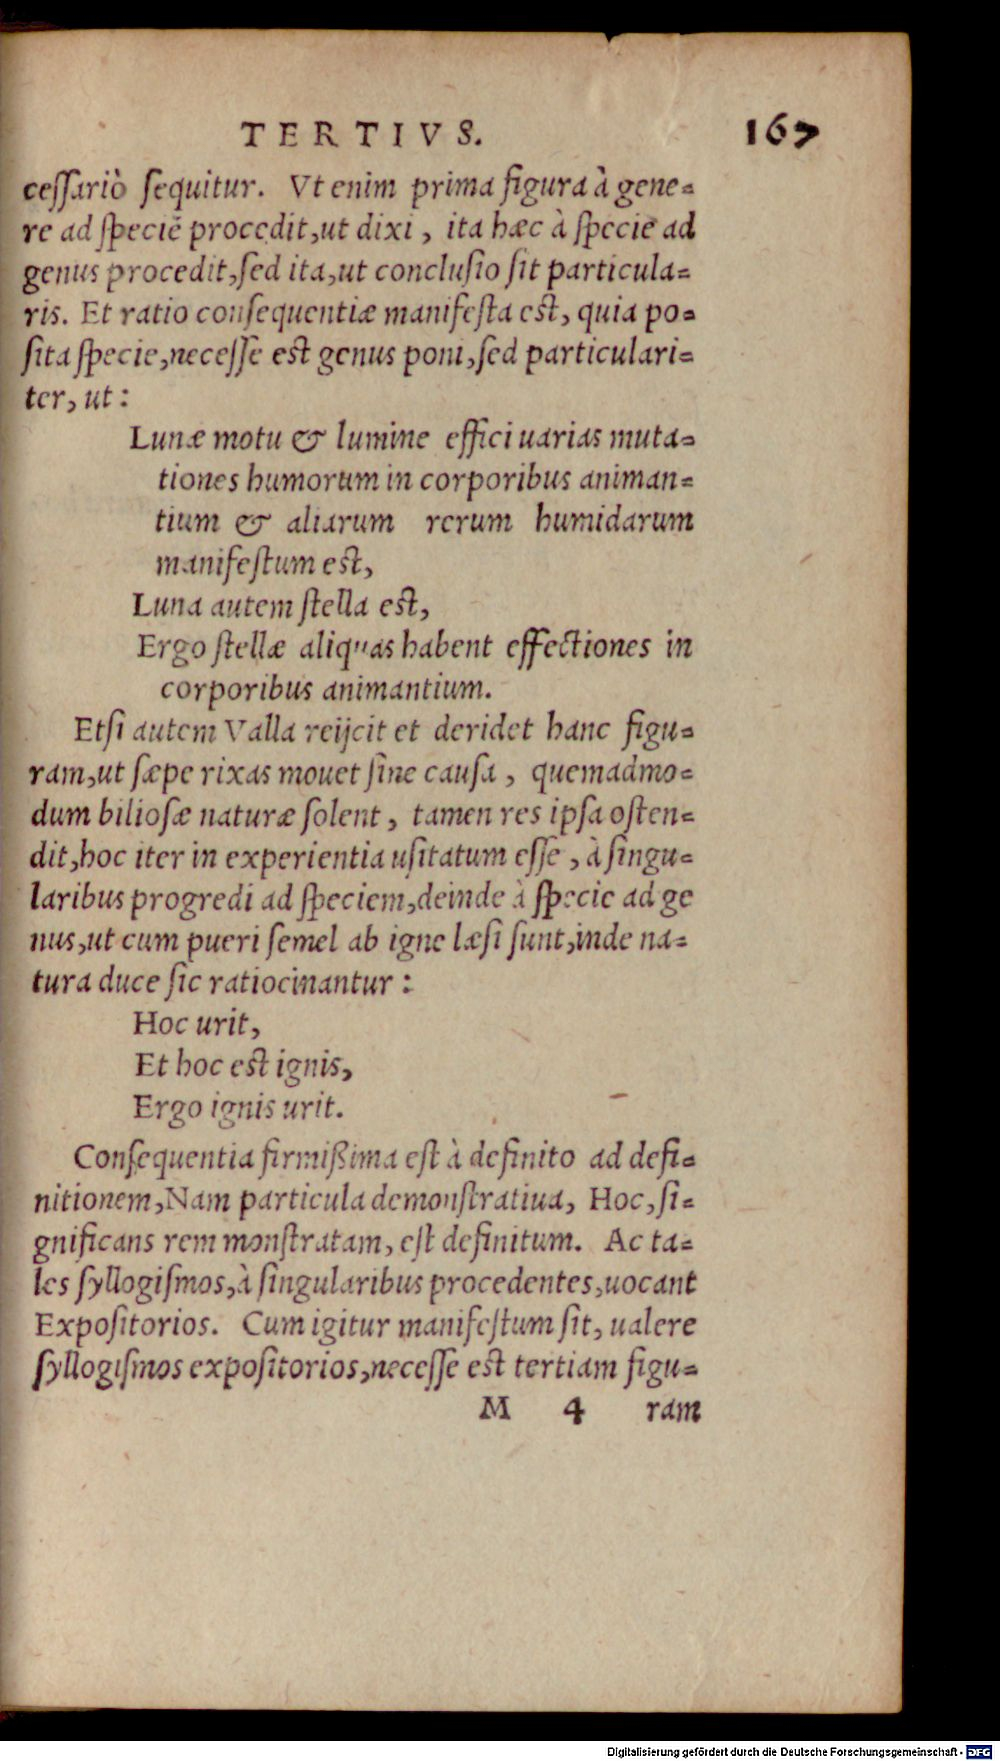 TERTIVS. 167
ceſſariò ſequitur. Vt enim prima figura à gene=
re ad ſpeciē procedit,ut dixi, ita hæc à ſpecie ad
genus procedit,ſed ita,ut concluſio ſit particula=
ris. Et ratio conſequentiæ manifeſta eſt, quia po=
ſita ſpecie,neceſſe eſt genus poni,ſed particulari=
ter, ut:
Lunæ motu & lumine effici uarias muta=
tiones humorum in corporibus animan=
tium & aliarum rerum humidarum
manifeſtum eſt,
Luna autem ſtella eſt,
Ergo ſtellæ aliquas habent effectiones in
corporibus animantium.
Etſi autem Valla reijcit et deridet hanc figu=
ram,ut ſæpe rixas mouet ſine cauſa, quemadmo=
dum bilioſæ naturæ ſolent, tamen res ipſa oſten=
dit,hoc iter in experientia uſitatum eſſe, à ſingu=
laribus progredi ad ſpeciem,deinde à ſpecie ad ge
nus,ut cum pueri ſemel ab igne læſi ſunt,inde na=
tura duce ſic ratiocinantur:
Hoc urit,
Et hoc eſt ignis,
Ergo ignis urit.
Conſequentia firmißima eſt à definito ad defi=
nitionem,Nam particula demonſtratiua, Hoc,ſi=
gnificans rem monſtratam, eſt definitum. Ac ta=
les ſyllogiſmos,à ſingularibus procedentes,uocant
Expoſitorios. Cum igitur manifeſtum ſit, ualere
ſyllogiſmos expoſitorios,neceſſe eſt tertiam figu=
M 4 ram
Digitalisierung gefördert durch die Deutsche Forschungsgemeinschaft - DFG